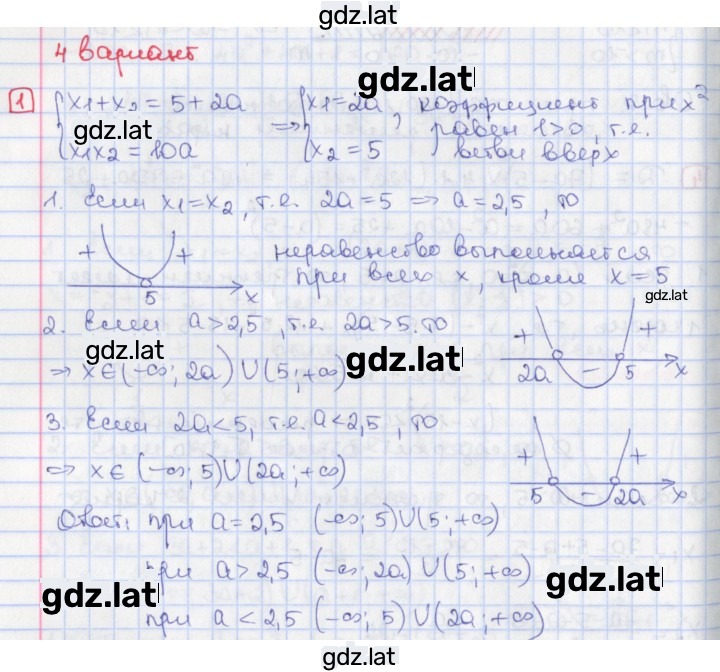 gdz.lat
4 вариант
gdz.lat
1 {x₁+x₂ = 5+2a ⇒ {x₁=2a, коэффициент при x²
gdz.lat равен 1>0, т.е.
x₁x₂ = 10a x₂ = 5 ветви вверх
1. Если x₁=x₂, т.е. 2a=5 ⇒ a=2,5, то
+ + неравенство выполняется
5 x при всех x, кроме x=5
gdz.lat
2. Если a>2,5, т.е. 2a>5, то
gdz.lat gdz.lat
⇒ x∈(-∞; 2a) ∪ (5; +∞)
+ - + 2a 5 x
3. Если 2a<5, т.е. a<2,5, то
⇒ x∈ (-∞; 5) ∪ (2a; +∞)
+ - + 5 2a x
Ответ: при a=2,5 (-∞; 5)∪(5; +∞)
при a>2,5 (-∞; 2a) ∪ (5; +∞)
gdz.lat gdz.lat
при a<2,5 (-∞; 5) ∪ (2a; +∞)
gdz.lat